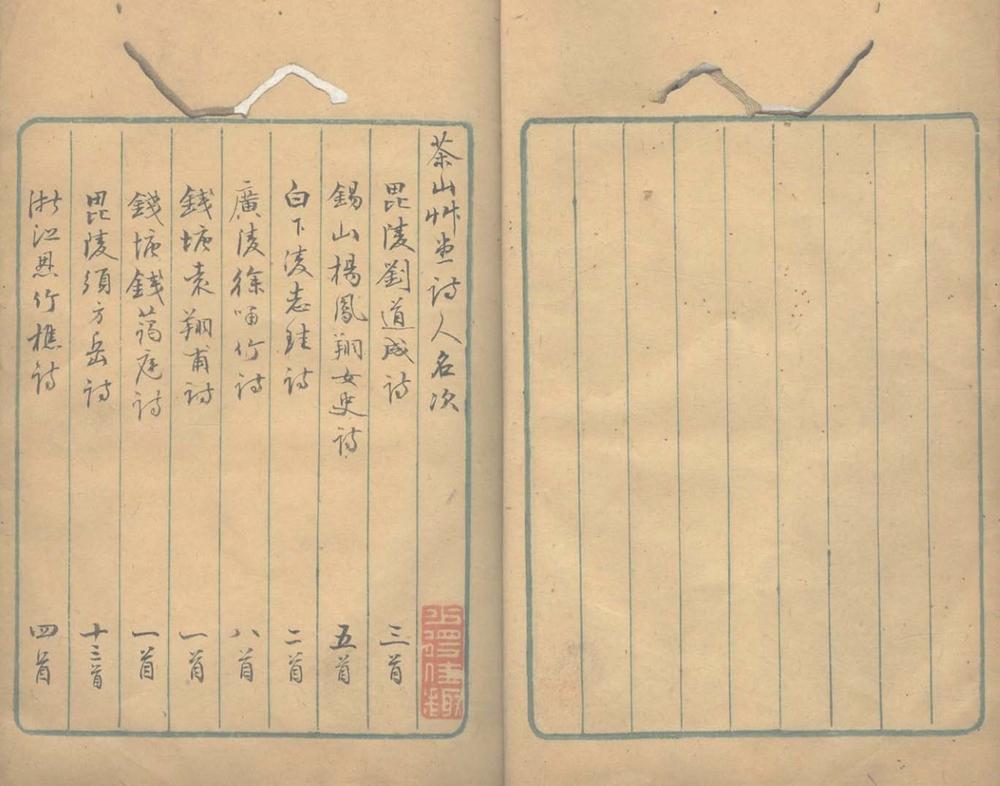 茶山艸堂詩人名次
毘陵劉道成詩 三首
錫山楊鳳翔女史詩 五首
白下凌志珪詩 二首
廣陵徐嘯竹詩 八首
錢塘袁翔甫詩 一首
錢塘錢蒍庭詩 一首
毘陵須方岳詩 十三首
浙江恩竹樵詩 四首